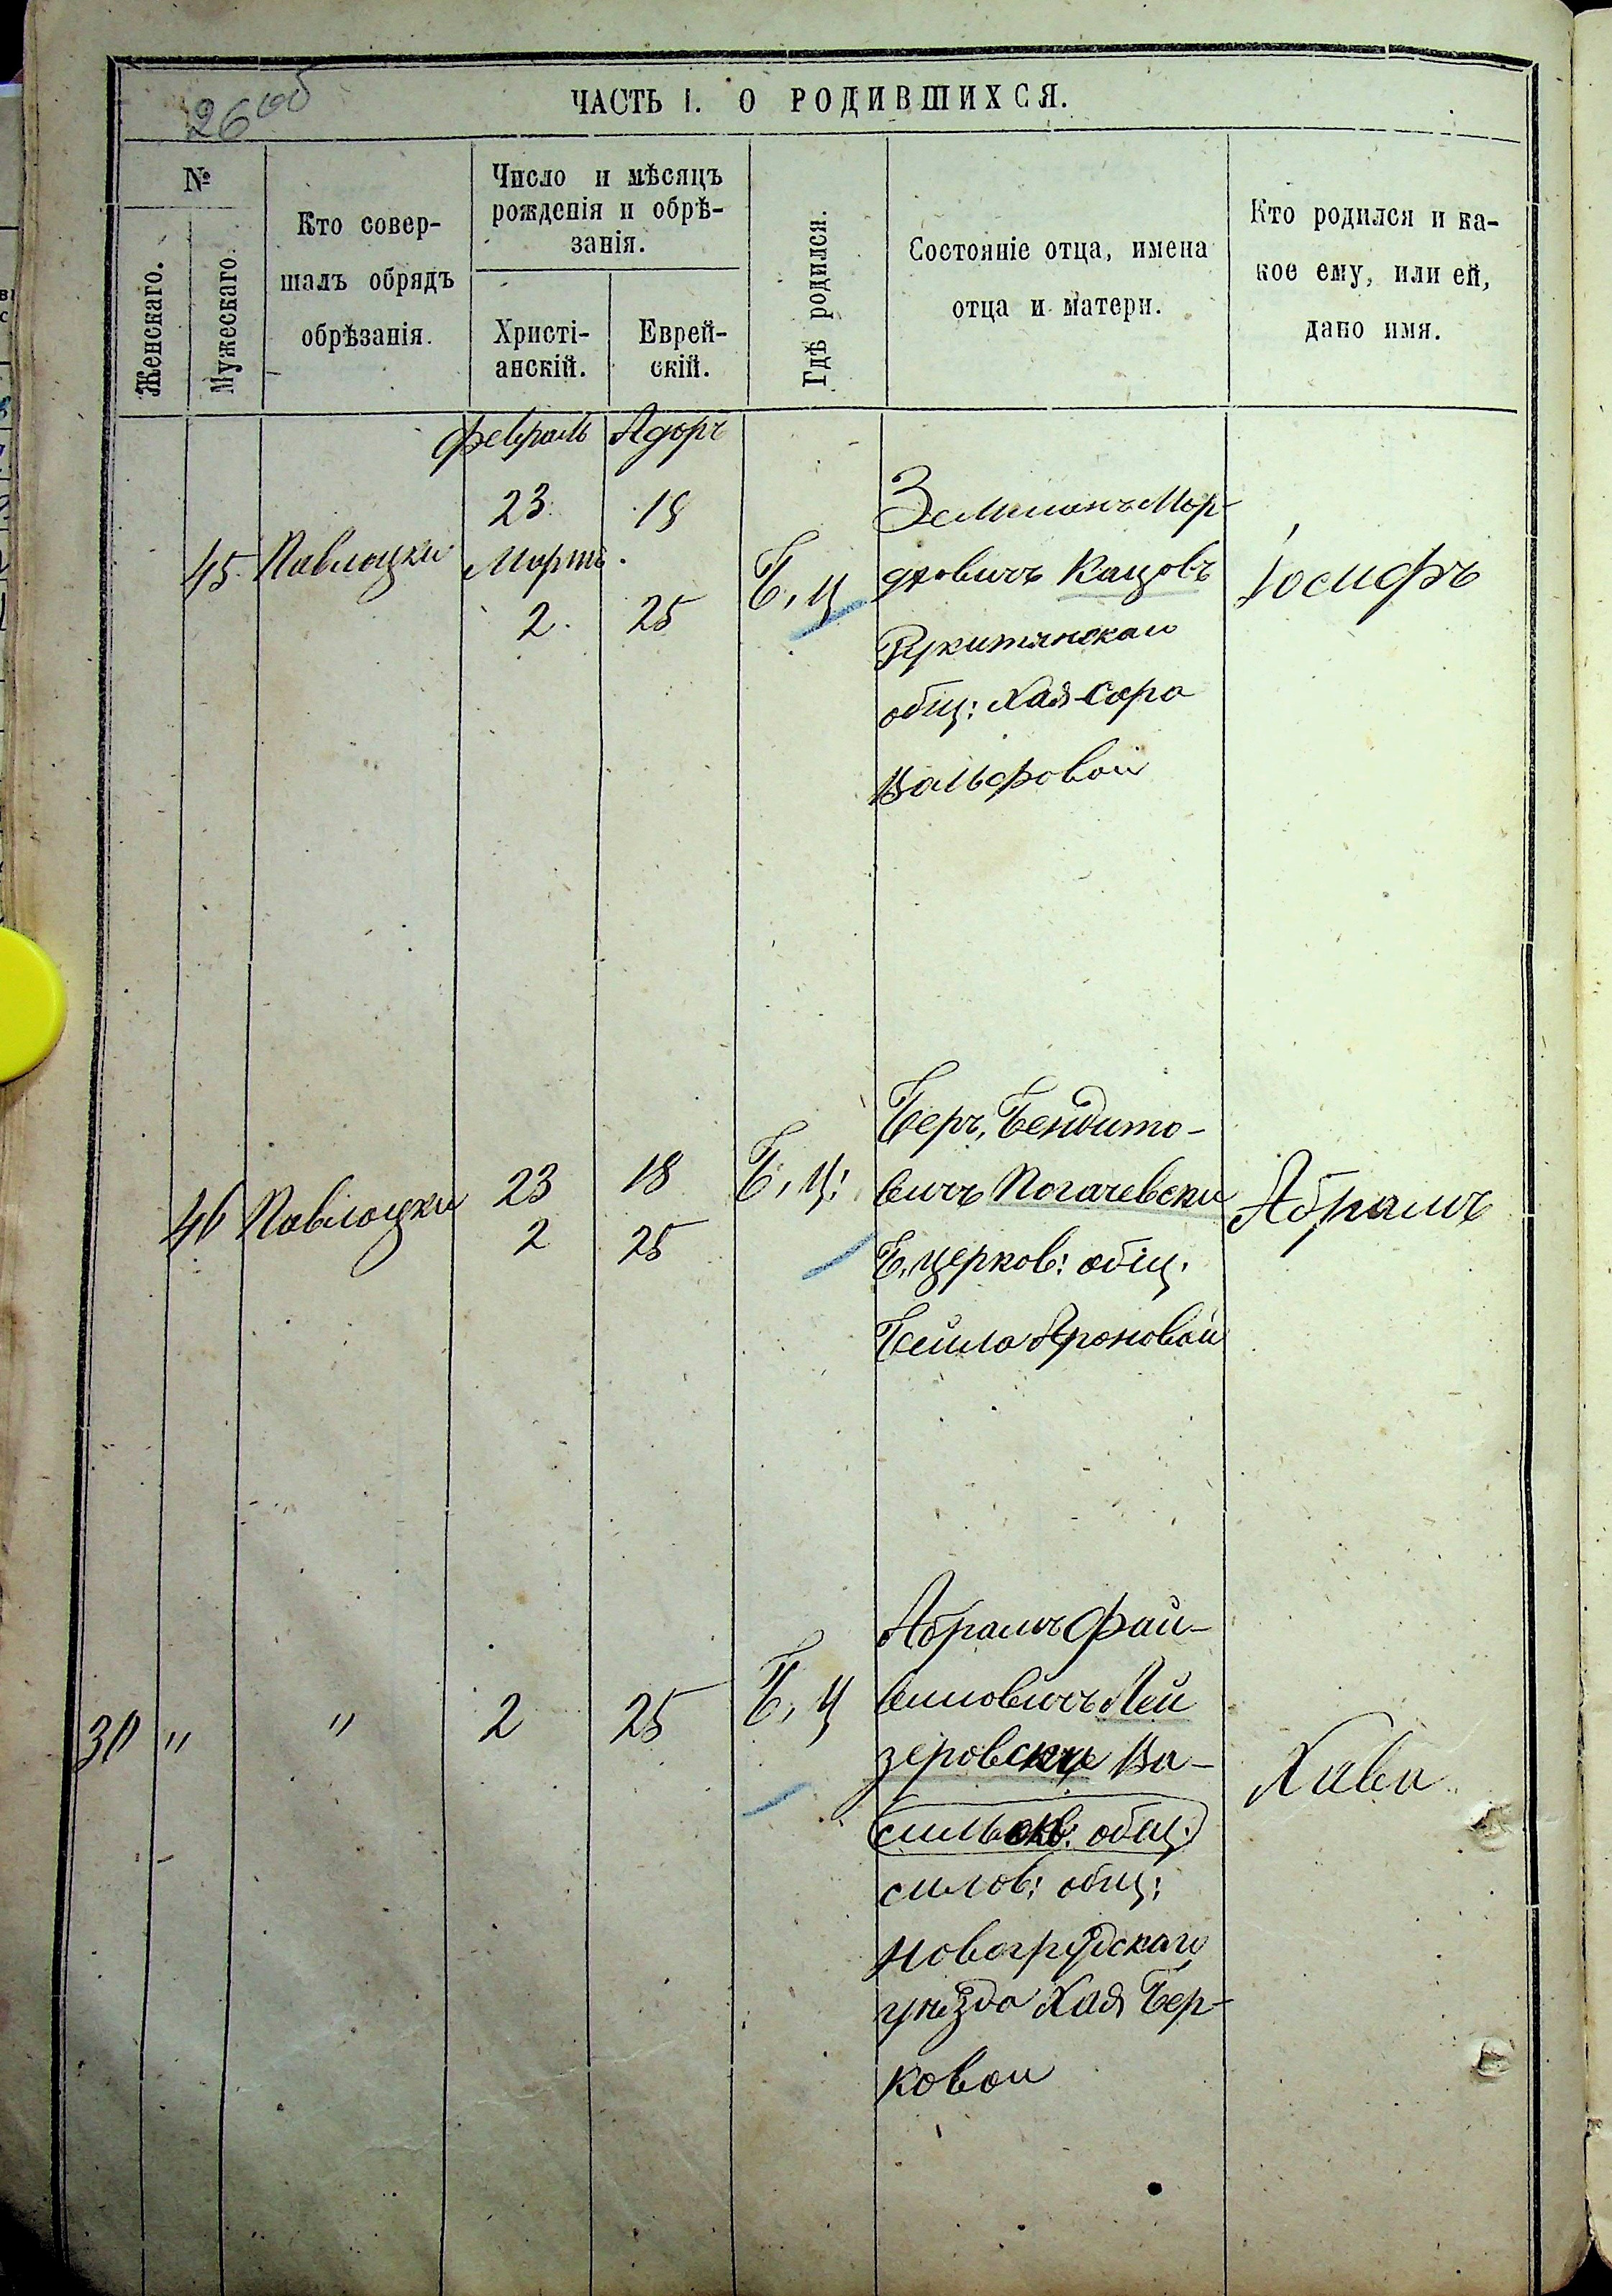 26 об
ЧАСТЬ I. О РОДИВШИХСЯ.
№
Женскаго.
Мужескаго.
Кто совер-
шалъ обрядъ
обрѣзанія.
Число и мѣсяцъ
рожденія и обрѣ-
занія.
Христі-
анскій.
Еврей-
скій.
Гдѣ родился.
Состояніе отца, имена
отца и матери.
Кто родился и ка-
кое ему, или ей,
дано имя.
Февраль Адоръ
45 Павлоцки
23 18
Мартъ
2 25
Б, Ц
Зельманъ Мор-
дковичъ Кацовъ
общ: Хая-Сора
Вольфовой
Іосифъ
46 Павлоцки
23 18
2 25
Б, Ц:
Беръ, Бендито-
вичъ Погачевски
Б. церков: общ.
Бейла Ароновой
Абрамъ
30 " " 2 25 Б, Ц
Абрамъ Фай-
вишовичъ Лей
зеровски Ва-
сильков: общ:
силов: общ:
Новогрудскаго
уѣзда Хая Бер-
ковой
Хава